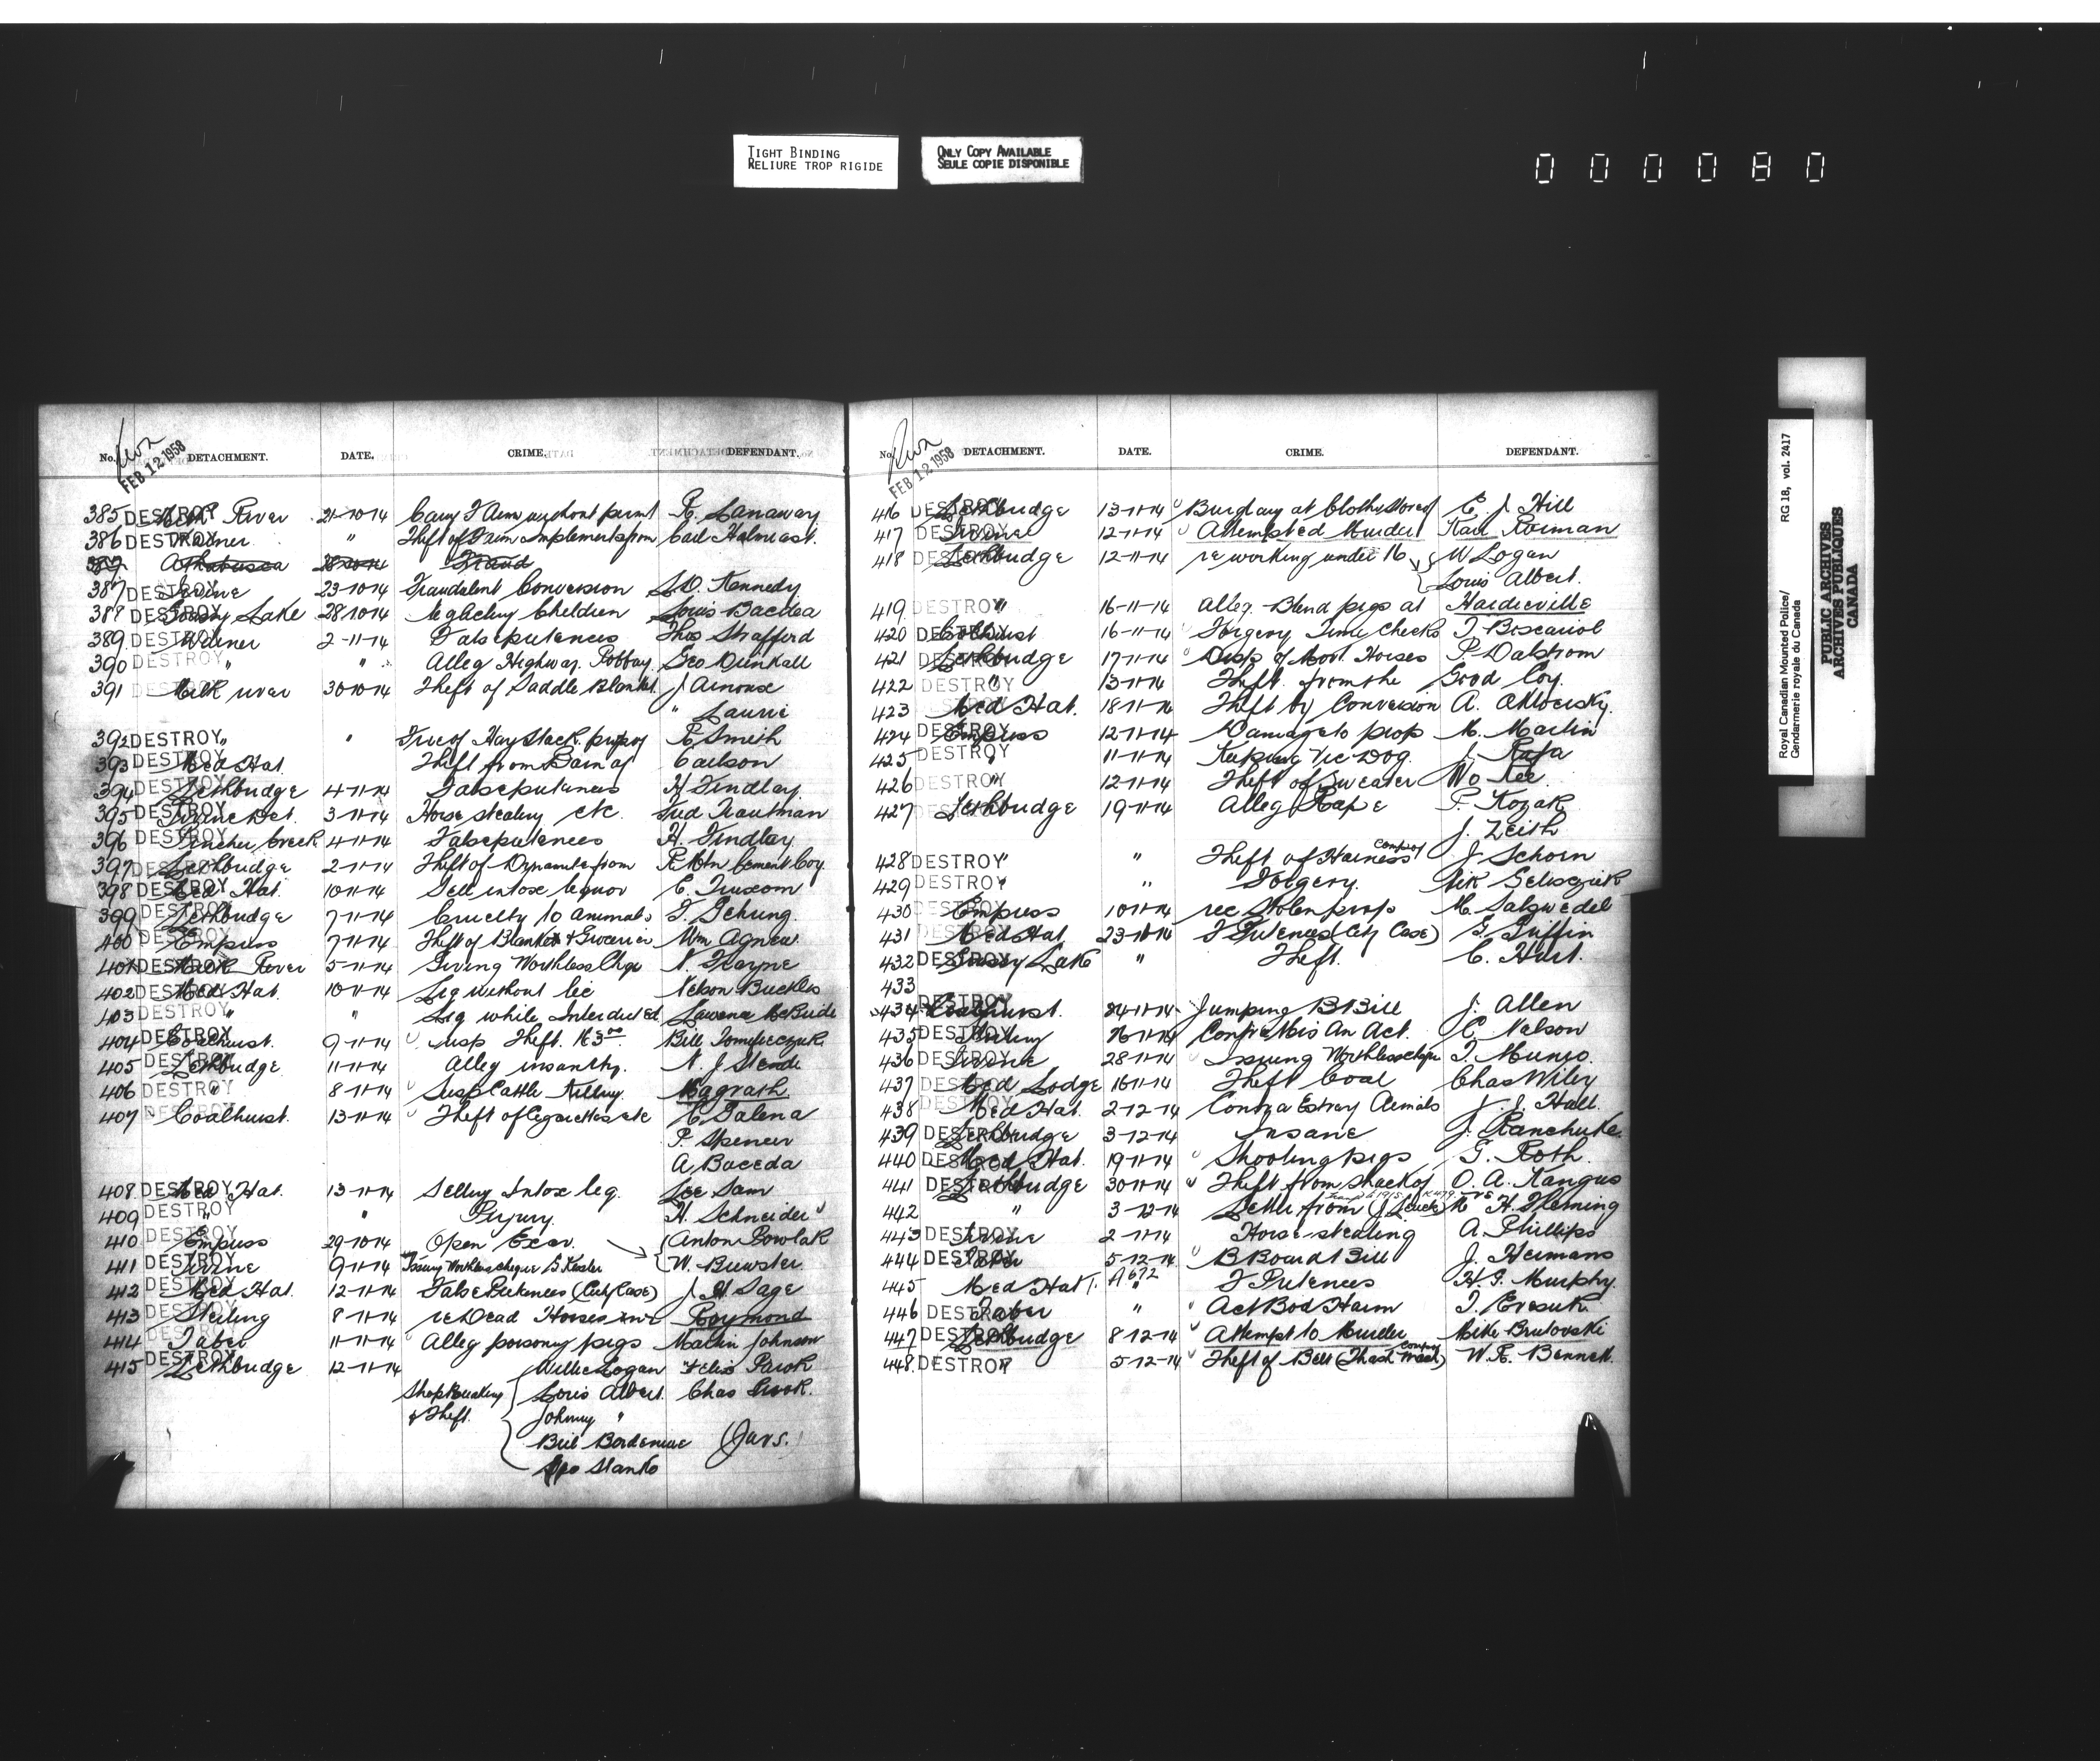 TIGHT BINDING
RELIURE TROP RIGIDE
ONLY COPY AVAILABLE
SEULE COPIE DISPONIBLE
000080
Royal Canadian Mounted Police/
Gendarmerie royale du Canada
RG 18, vol. 2417
PUBLIC ARCHIVES
ARCHIVES PUBLIQUES
CANADA
FEB 12 1958
No. DETACHMENT. DATE. CRIME. DEFENDANT.
385 DESTROY Milk River 21-10-14 Carry F Arm without permt R. Lanaway
386 DESTROY Warner " Theft of Farm Implements from Carl Halmrast.
387 Athabasca 28-10-14 Fraud
387 DESTROY Irvine 23-10-14 Fraudulent Conversion S.D. Kennedy
388 DESTROY Grassy Lake 28-10-14 Children Louis
389 DESTROY Warner 2-11-14 False pretences Thos Strafford
390 DESTROY " " Alleg Highway Robbay Geo
391 DESTROY Milk river 30-10-14 Theft of Saddle Blanket J Arnoux
" Laurie
392 DESTROY " " Fire of Hay Stack prop of E Smith
393 DESTROY Med Hat. Theft from Barn of Carlson
394 DESTROY Lethbridge 4-11-14 False pretences H. Findlay
395 DESTROY Irvine Det. 3-11-14 Horse stealing etc Fred Trautman
396 DESTROY Pincher Creek 4-11-14 False pretences H. Findlay.
397 DESTROY Lethbridge 2-11-14 Theft of Dynamite from R. Mtn Cement Coy.
398 DESTROY Med Hat. 10-11-14 Sell intox liquor E.
399 DESTROY Lethbridge 7-11-14 Cruelty to animals F. Gehring.
400 DESTROY Empress 7-11-14 Theft of Blanket & Groceries Wm Agnew.
401 DESTROY Milk River 5-11-14 Giving Worthless Chqe N.
402 DESTROY Med Hat. 10-11-14 Liq without lic Nelson Buckles
403 DESTROY " " Liq while Interdicted McBride
404 DESTROY Coalhurst. 9-11-14 Susp Theft. Bill
405 DESTROY Lethbridge 11-11-14 Alleg insanity. N. J
406 DESTROY " 8-11-14 Susp Cattle Killing. Magrath
407 D Coalhurst. 13-11-14 Theft of Cigarettes etc C. Galena
P. Spencer
A Baceda
408 DESTROY Med Hat. 13-11-14 Selling Intox liq. Lee Sam
409 DESTROY " " Perjury. H. Schneider
410 DESTROY Empress 29-10-14 Open Excav. Anton Powlak
411 DESTROY Irvine 9-11-14 Issuing Worthless cheque G Kesler W. Brewster.
412 DESTROY Med Hat. 12-11-14 False Pretences (City Case) J. H. Sage
413 DESTROY Stirling 8-11-14 re Dead Horses Raymond
414 DESTROY Taber 11-11-14 Alleg poisoning pigs Martin Johnson
415 DESTROY Lethbridge 12-11-14 Willie Logan Felix
Shopbreaking Louis Albert. Chas
& Theft. Johnny "
Bill (Juvs.)
Geo Stanko
FEB 12 1958
No. DETACHMENT. DATE. CRIME. DEFENDANT.
416 DESTROY Lethbridge 13-11-14 Burglary at Clothe Store of E. J. Hill
417 DESTROY Irvine 12-11-14 Attempted Murder Karl Roiman
418 DESTROY Lethbridge 12-11-14 re working under 16 W Logan
Louis Albert.
419 DESTROY " 16-11-14 Alleg. Blind pigs at Hardieville
420 DESTROY Coalhurst 16-11-14 Forgery Time Checks T Biscariol
421 DESTROY Lethbridge 17-11-14 Disp of Mort. Horses P. Dalstrom
422 DESTROY " 13-11-14 Theft. from the Coy.
423 DESTROY Med Hat. 18-11-14 Theft by Conversion A.
424 DESTROY Empress 12-11-14 Damage to prop M. Martin
425 DESTROY " 11-11-14 Keeping Vic Dog. J. Rafa
426 DESTROY " 12-11-14 Theft of Sweater Wo Kee
427 DESTROY Lethbridge 19-11-14 Alleg Rape P. Kozak
J. Zeith
428 DESTROY " " Theft of Harness Comp of J Schorn
429 DESTROY " " Forgery. Nik
430 DESTROY Empress 10-11-14 rec stolen prop M. Salzwedel
431 DESTROY Med Hat 23-11-14 F Pretences (City Case) G. Griffin
432 DESTROY Grassy Lake " Theft. C. Hurt.
433
434 DESTROY Coalhurst. 24-11-14 Jumping B Bill J. Allen
435 DESTROY 26-11-14 Contra Mis An Act. C. Nelson
436 DESTROY Irvine 28-11-14 Issuing Worthless chque T. Munro.
437 DESTROY Med Lodge 16-11-14 Theft Coal Chas Wiley
438 DESTROY Med Hat. 2-12-14 Contra Estray Animals J. J. Hall.
439 DESTROY Lethbridge 3-12-14 Insane J. Ranchuke.
440 DESTROY Med Hat. 19-11-14 Shooting pigs G. Roth.
441 DESTROY Lethbridge 30-11-14 Theft from shack of O. A. Kangus
442 " 3-12-14 Letter from H. Fleming
443 DESTROY Irvine 2-11-14 Horse stealing A. Phillips
444 DESTROY Taber 5-12-14 B Board Bill J. Hermans
445 Med Hat. A 672 " F Pretences H. G. Murphy.
446 DESTROY Taber " Act Bod Harm T.
447 DESTROY Lethbridge 8-12-14 Attempt to Murder Mike Brutovski
448 DESTROY " 5-12-14 Theft of Belt (Thash Mach) Comp of W. R. Bennett.